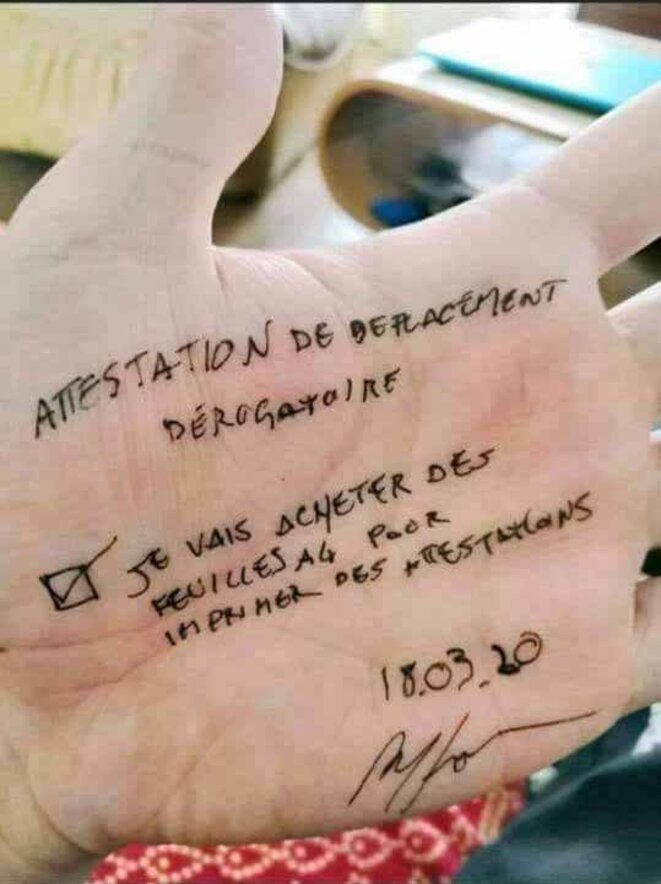 ATTESTATION DE DEPLACEMENT
DÉROGATOIRE
☑ JE VAIS ACHETER DES
FEUILLES A4 POUR
IMPRIMER DES ATTESTATIONS
18.03.20